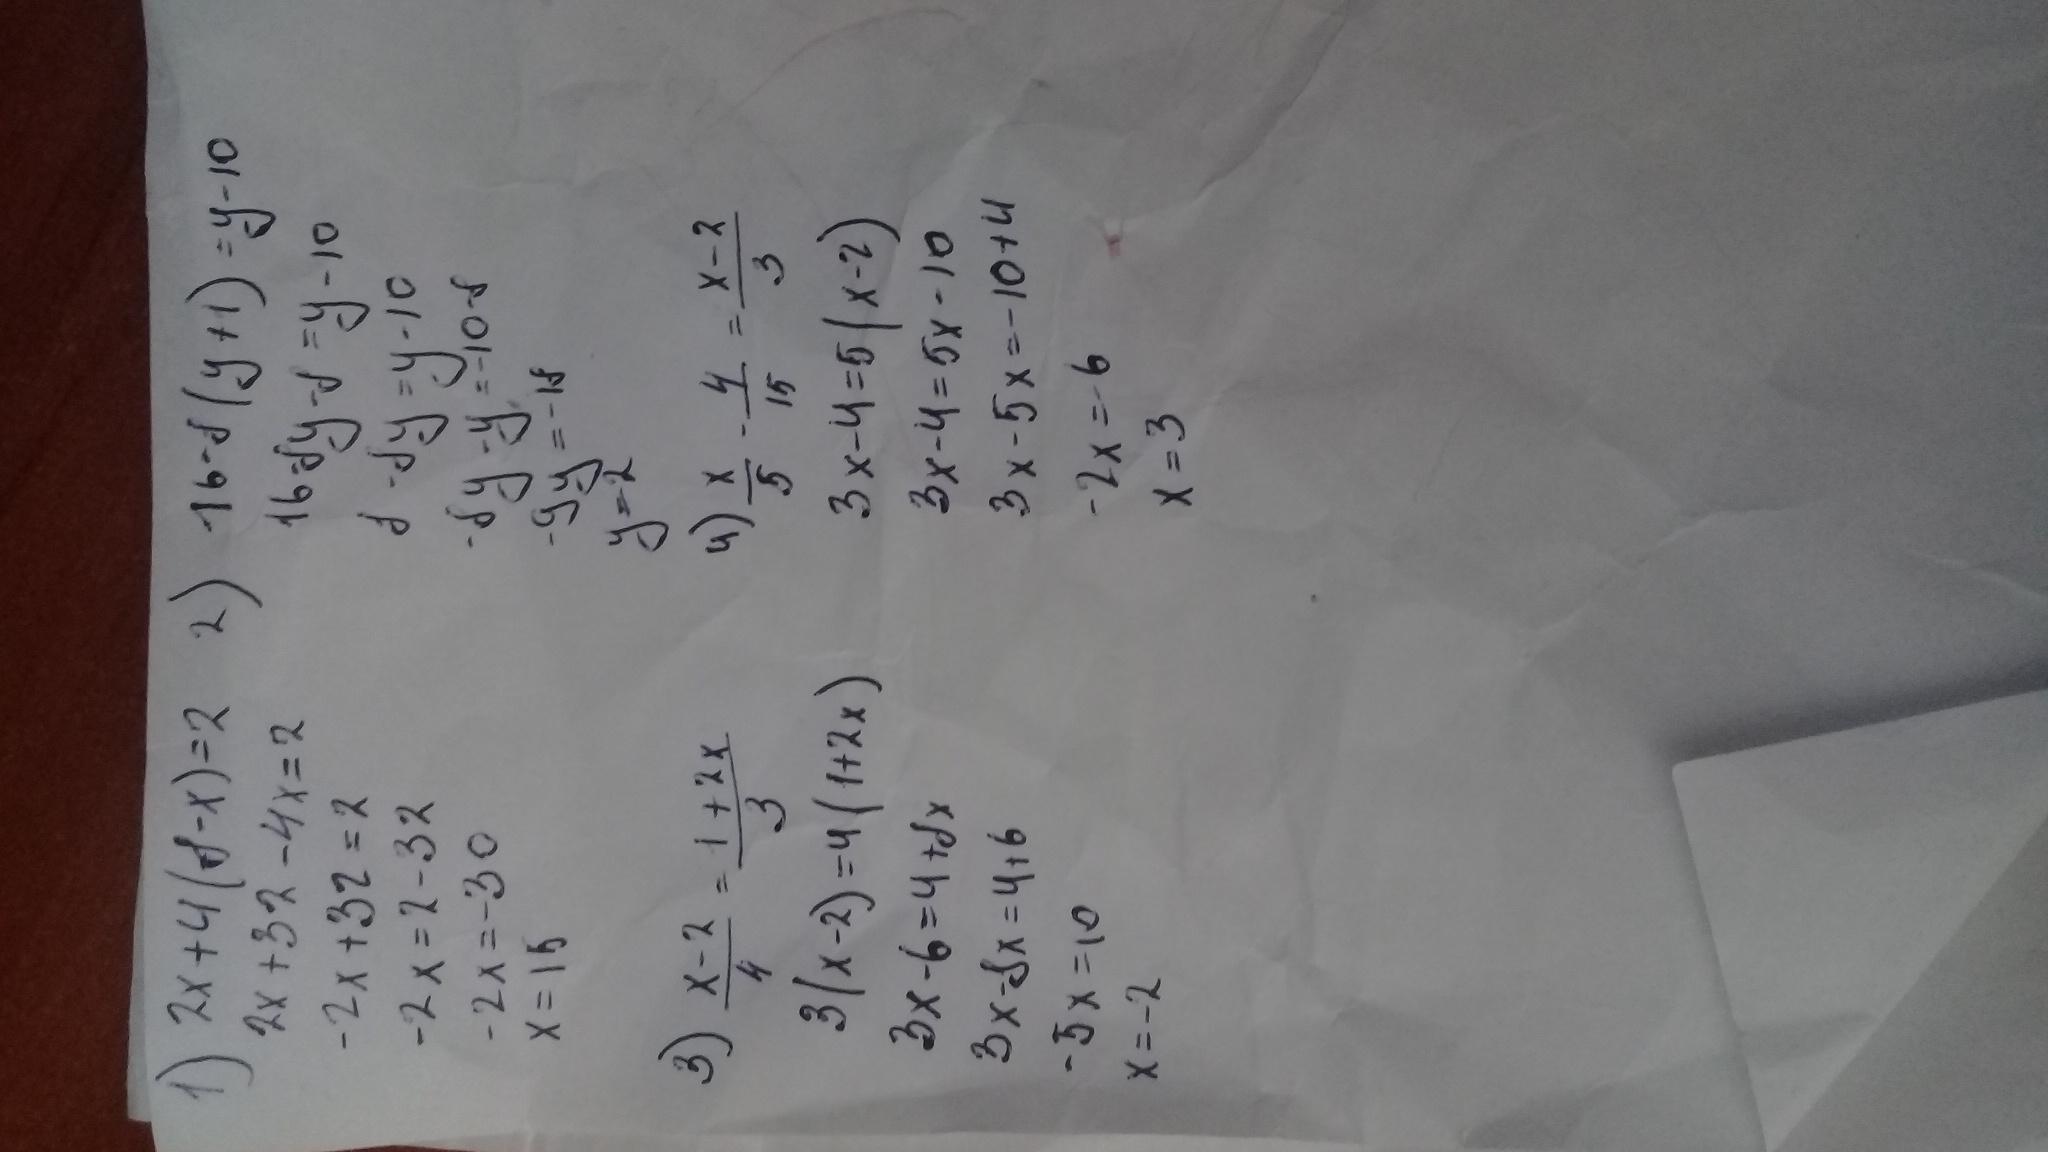 1) 2x+4(8-x)=2
2x+32-4x=2
-2x+32=2
-2x=2-32
-2x=-30
x=15
2) 16-8(y+1)=y-10
16-8y-8=y-10
8-8y=y-10
-8y-y=-10-8
-9y=-18
y=2
3) x-2/4 = 1+2x/3
3(x-2)=4(1+2x)
3x-6=4+8x
3x-8x=4+6
-5x=10
x=-2
4) x/5 - 4/15 = x-2/3
3x-4=5(x-2)
3x-4=5x-10
3x-5x=-10+4
-2x=-6
x=3